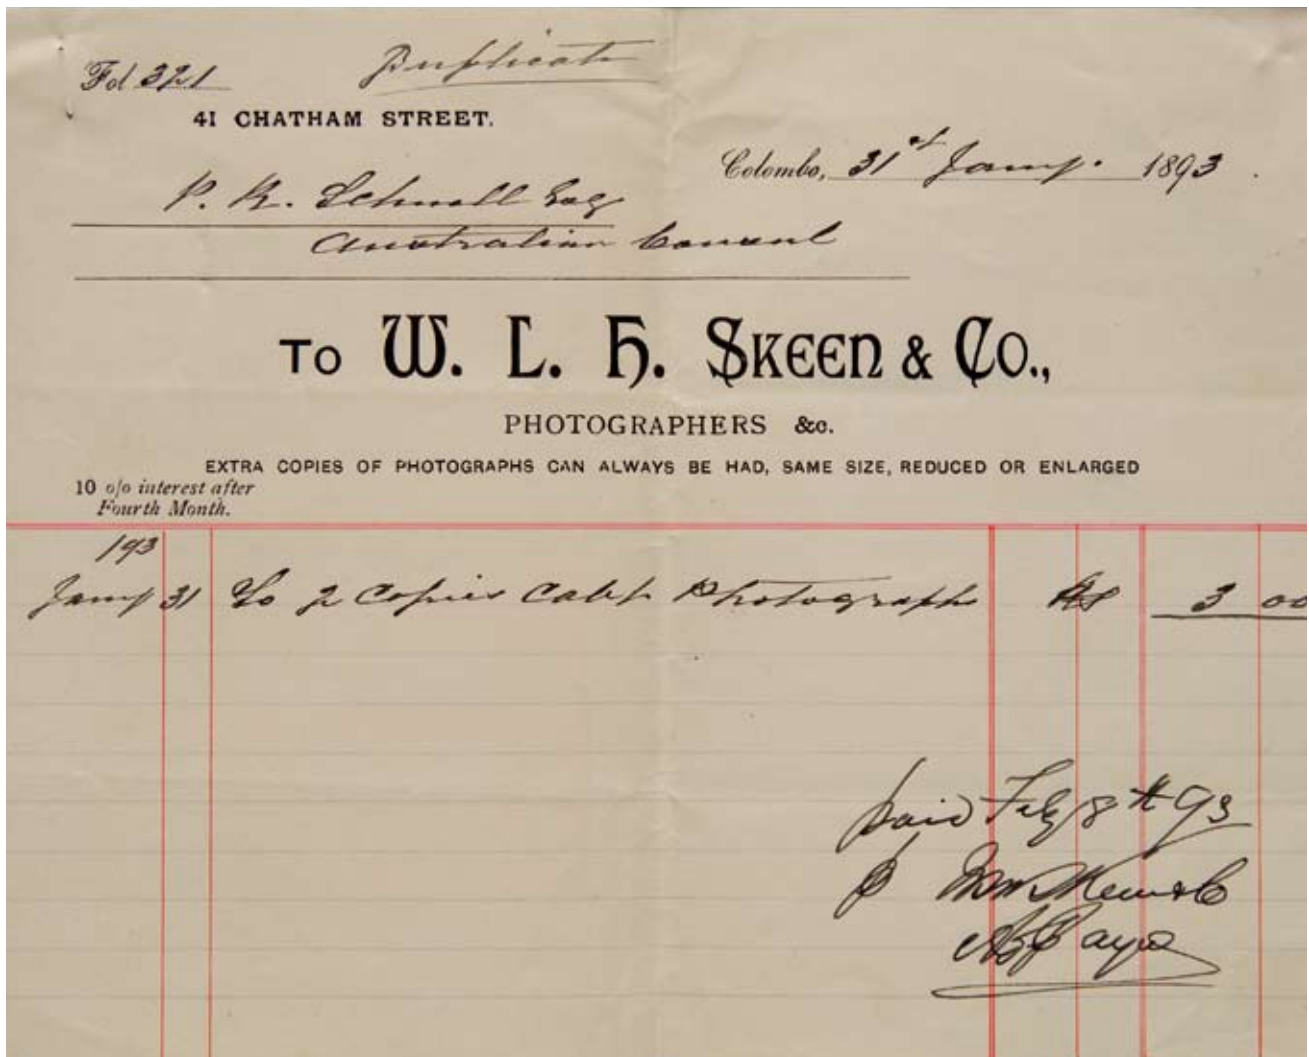 Fol 321 Duplicate
41 CHATHAM STREET.
Colombo, 31st Jany. 1893.
P. R. Schnell Esq
Australian Consul
To W. L. H. SKEEN & CO.,
PHOTOGRAPHERS &c.
EXTRA COPIES OF PHOTOGRAPHS CAN ALWAYS BE HAD, SAME SIZE, REDUCED OR ENLARGED
10 o/o interest after
Fourth Month.
193
Jany 31 To 2 Copies Cabt Photographs Rs 3 00
paid Feby 8th 93